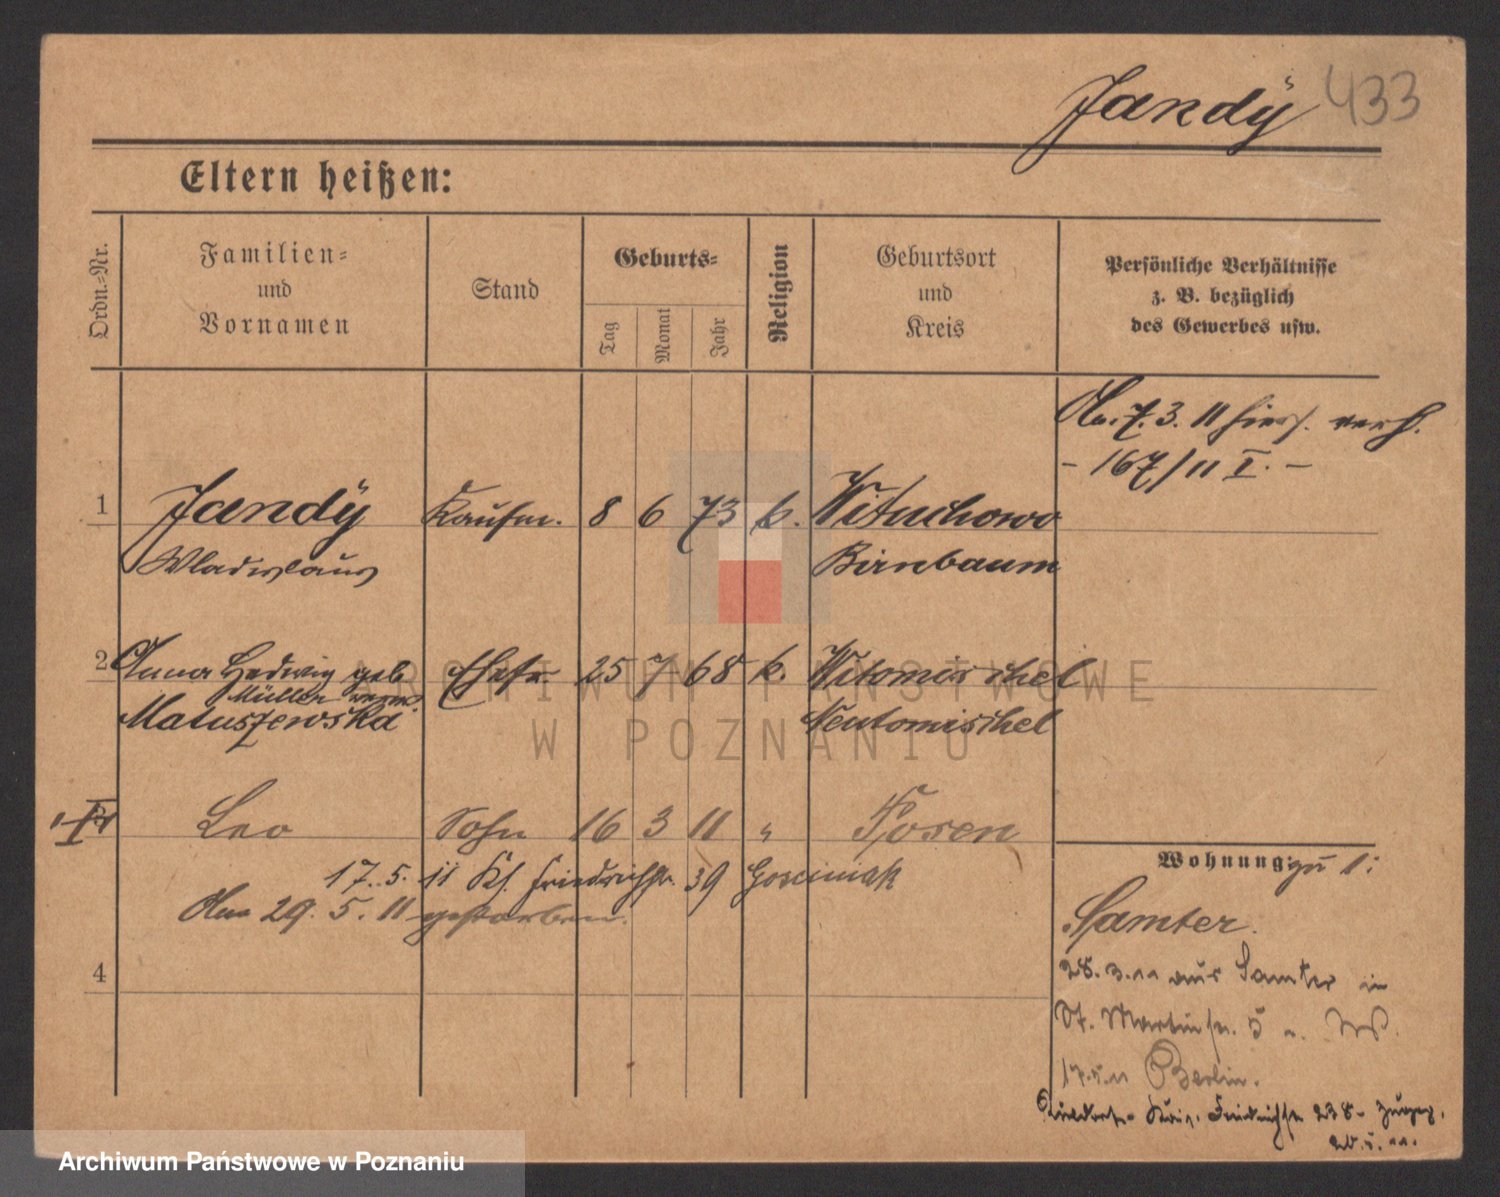 Jandÿ 433
Eltern heißen:
Ordn.-Nr.
Familien-
und
Vornamen
Stand
Geburts-
Tag
Monat
Jahr
Religion
Geburtsort
und
Kreis
Persönliche Verhältnisse
z. B. bezüglich
des Gewerbes usw.
7. 3. 11 hiers. verh.
- 167/11 I. -
1 Jandÿ Kaufm. 8 6 73 k. Wituchowo
Wladislaus Birnbaum
2 Anna Hedwig geb. Ehefr. 25 7 68 k. Witomischel
Müller verw.
Matuszewska Neutomischel
Leo Sohn 16 3 11 " Posen
17. 5. 11 Kl. Friedrichstr. 39 Gosciniak
Am 29. 5. 11 gestorben.
4
Wohnung zu 1:
Samter.
28. 3. 11 aus Samter in
St. Martinstr. 5
17. 5. 11 Berlin.
Friedrichstr. 238
ARCHIWUM PAŃSTWOWE
W POZNANIU
Archiwum Państwowe w Poznaniu